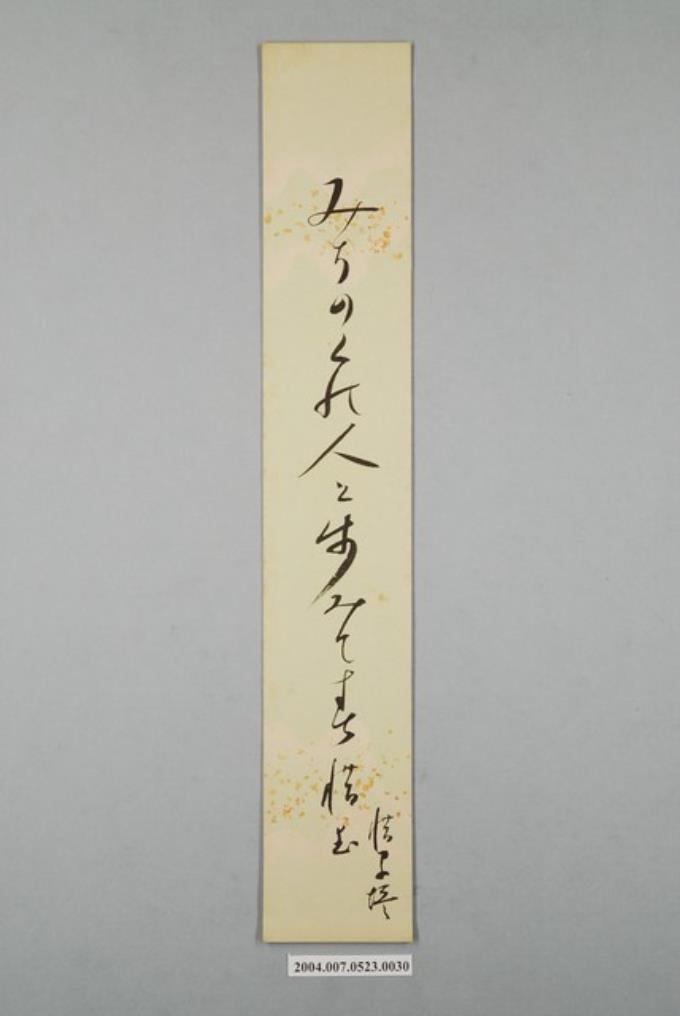 みちのくの人と歩みて春惜む
2004.007.0523.0030